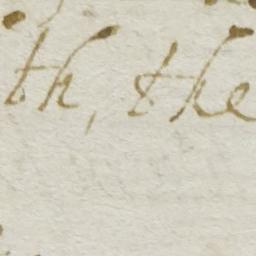 th, the